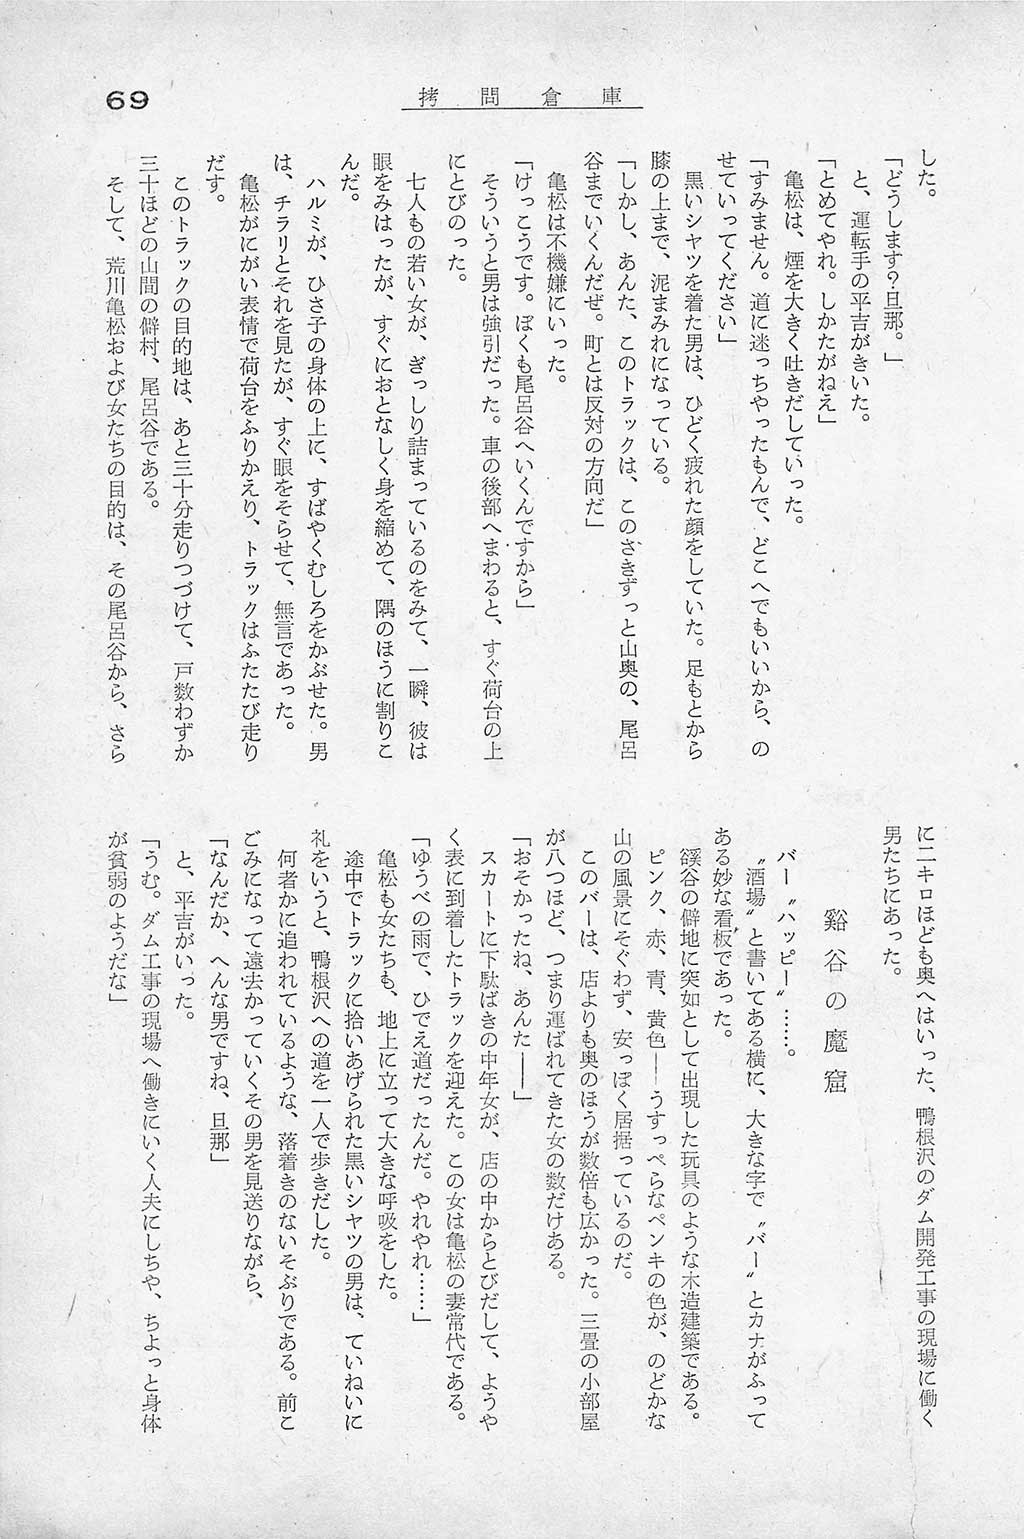 拷問倉庫
69
した。
「どうします？旦那。」
と、運転手の平吉がきいた。
「とめてやれ。しかたがねえ」
亀松は、煙を大きく吐きだしていった。
「すみません。道に迷っちゃったもんで、どこへでもいいから、の
せていってください」
黒いシャツを着た男は、ひどく疲れた顔をしていた。足もとから
膝の上まで、泥まみれになっている。
「しかし、あんた、このトラックは、このさきずっと山奥の、尾呂
谷までいくんだぜ。町とは反対の方向だ」
亀松は不機嫌にいった。
「けっこうです。ぼくも尾呂谷へいくんですから」
そういうと男は強引だった。車の後部へまわると、すぐ荷台の上
にとびのった。
七人もの若い女が、ぎっしり詰まっているのをみて、一瞬、彼は
眼をみはったが、すぐにおとなしく身を縮めて、隅のほうに割りこ
んだ。
ハルミが、ひさ子の身体の上に、すばやくむしろをかぶせた。男
は、チラリとそれを見たが、すぐ眼をそらせて、無言であった。
亀松がにがい表情で荷台をふりかえり、トラックはふたたび走り
だす。
このトラックの目的地は、あと三十分走りつづけて、戸数わずか
三十ほどの山間の僻村、尾呂谷である。
そして、荒川亀松および女たちの目的は、その尾呂谷から、さら
に二キロほども奥へはいった、鴨根沢のダム開発工事の現場に働く
男たちにあった。
谿谷の魔窟
バー〝ハッピー〟……。
〝酒場〟と書いてある横に、大きな字で〝バー〟とカナがふって
ある妙な看板であった。
谿谷の僻地に突如として出現した玩具のような木造建築である。
ピンク、赤、青、黄色――うすっぺらなペンキの色が、のどかな
山の風景にそぐわず、安っぽく居据っているのだ。
このバーは、店よりも奥のほうが数倍も広かった。三畳の小部屋
が八つほど、つまり運ばれてきた女の数だけある。
「おそかったね、あんた――」
スカートに下駄ばきの中年女が、店の中からとびだして、ようや
く表に到着したトラックを迎えた。この女は亀松の妻常代である。
「ゆうべの雨で、ひでえ道だったんだ。やれやれ……」
亀松も女たちも、地上に立って大きな呼吸をした。
途中でトラックに拾いあげられた黒いシャツの男は、ていねいに
礼をいうと、鴨根沢への道を一人で歩きだした。
何者かに追われているような、落着きのないそぶりである。前こ
ごみになって遠去かっていくその男を見送りながら、
「なんだか、へんな男ですね、旦那」
と、平吉がいった。
「うむ。ダム工事の現場へ働きにいく人夫にしちゃ、ちょっと身体
が貧弱のようだな」